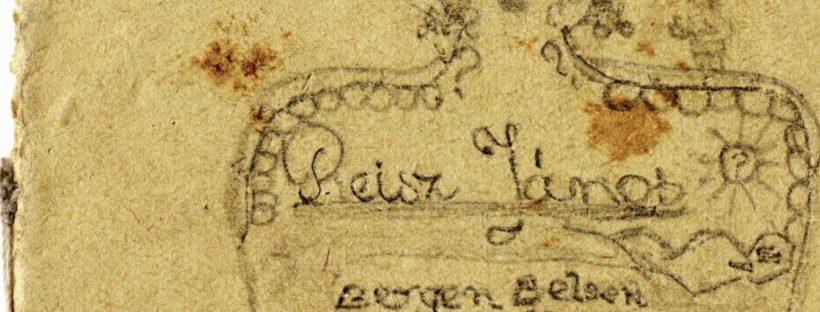 Reisz János
Bergen Belsen